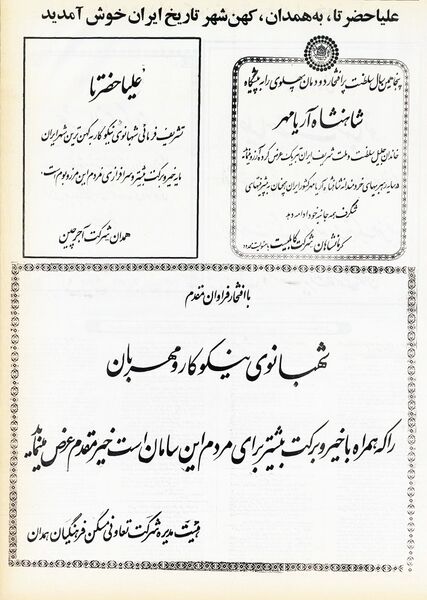 علیاحضرتا، به همدان، کهن شهر تاریخ ایران خوش آمدید
پنجاهمین سال سلطنت پرافتخار دودمان پهلوی را به پیشگاه
شاهنشاه آریامهر
خاندان جلیل سلطنت و ملت شریف ایران تبریک عرض کرده آرزومندیم
در سایه رهبریهای خردمندانه شاهنشاه آریامهر کشور ایران همچنان به پیشرفتهای
شگرف همه جانبه خود ادامه دهد
کرمانشاهان شرکت
علیاحضرتا
تشریف فرمائی شهبانوی نیکوکار به کهن ترین شهر ایران
مایه خیر و برکت بیشتر و سرافرازی مردم این مرز و بوم است.
همدان شرکت آجرچین
با افتخار فراوان مقدم
شهبانوی نیکوکار و مهربان
را که همراه با خیر و برکت بیشتر برای مردم این سامان است خیر مقدم عرض مینماید
هیئت مدیره شرکت تعاونی مسکن فرهنگیان همدان